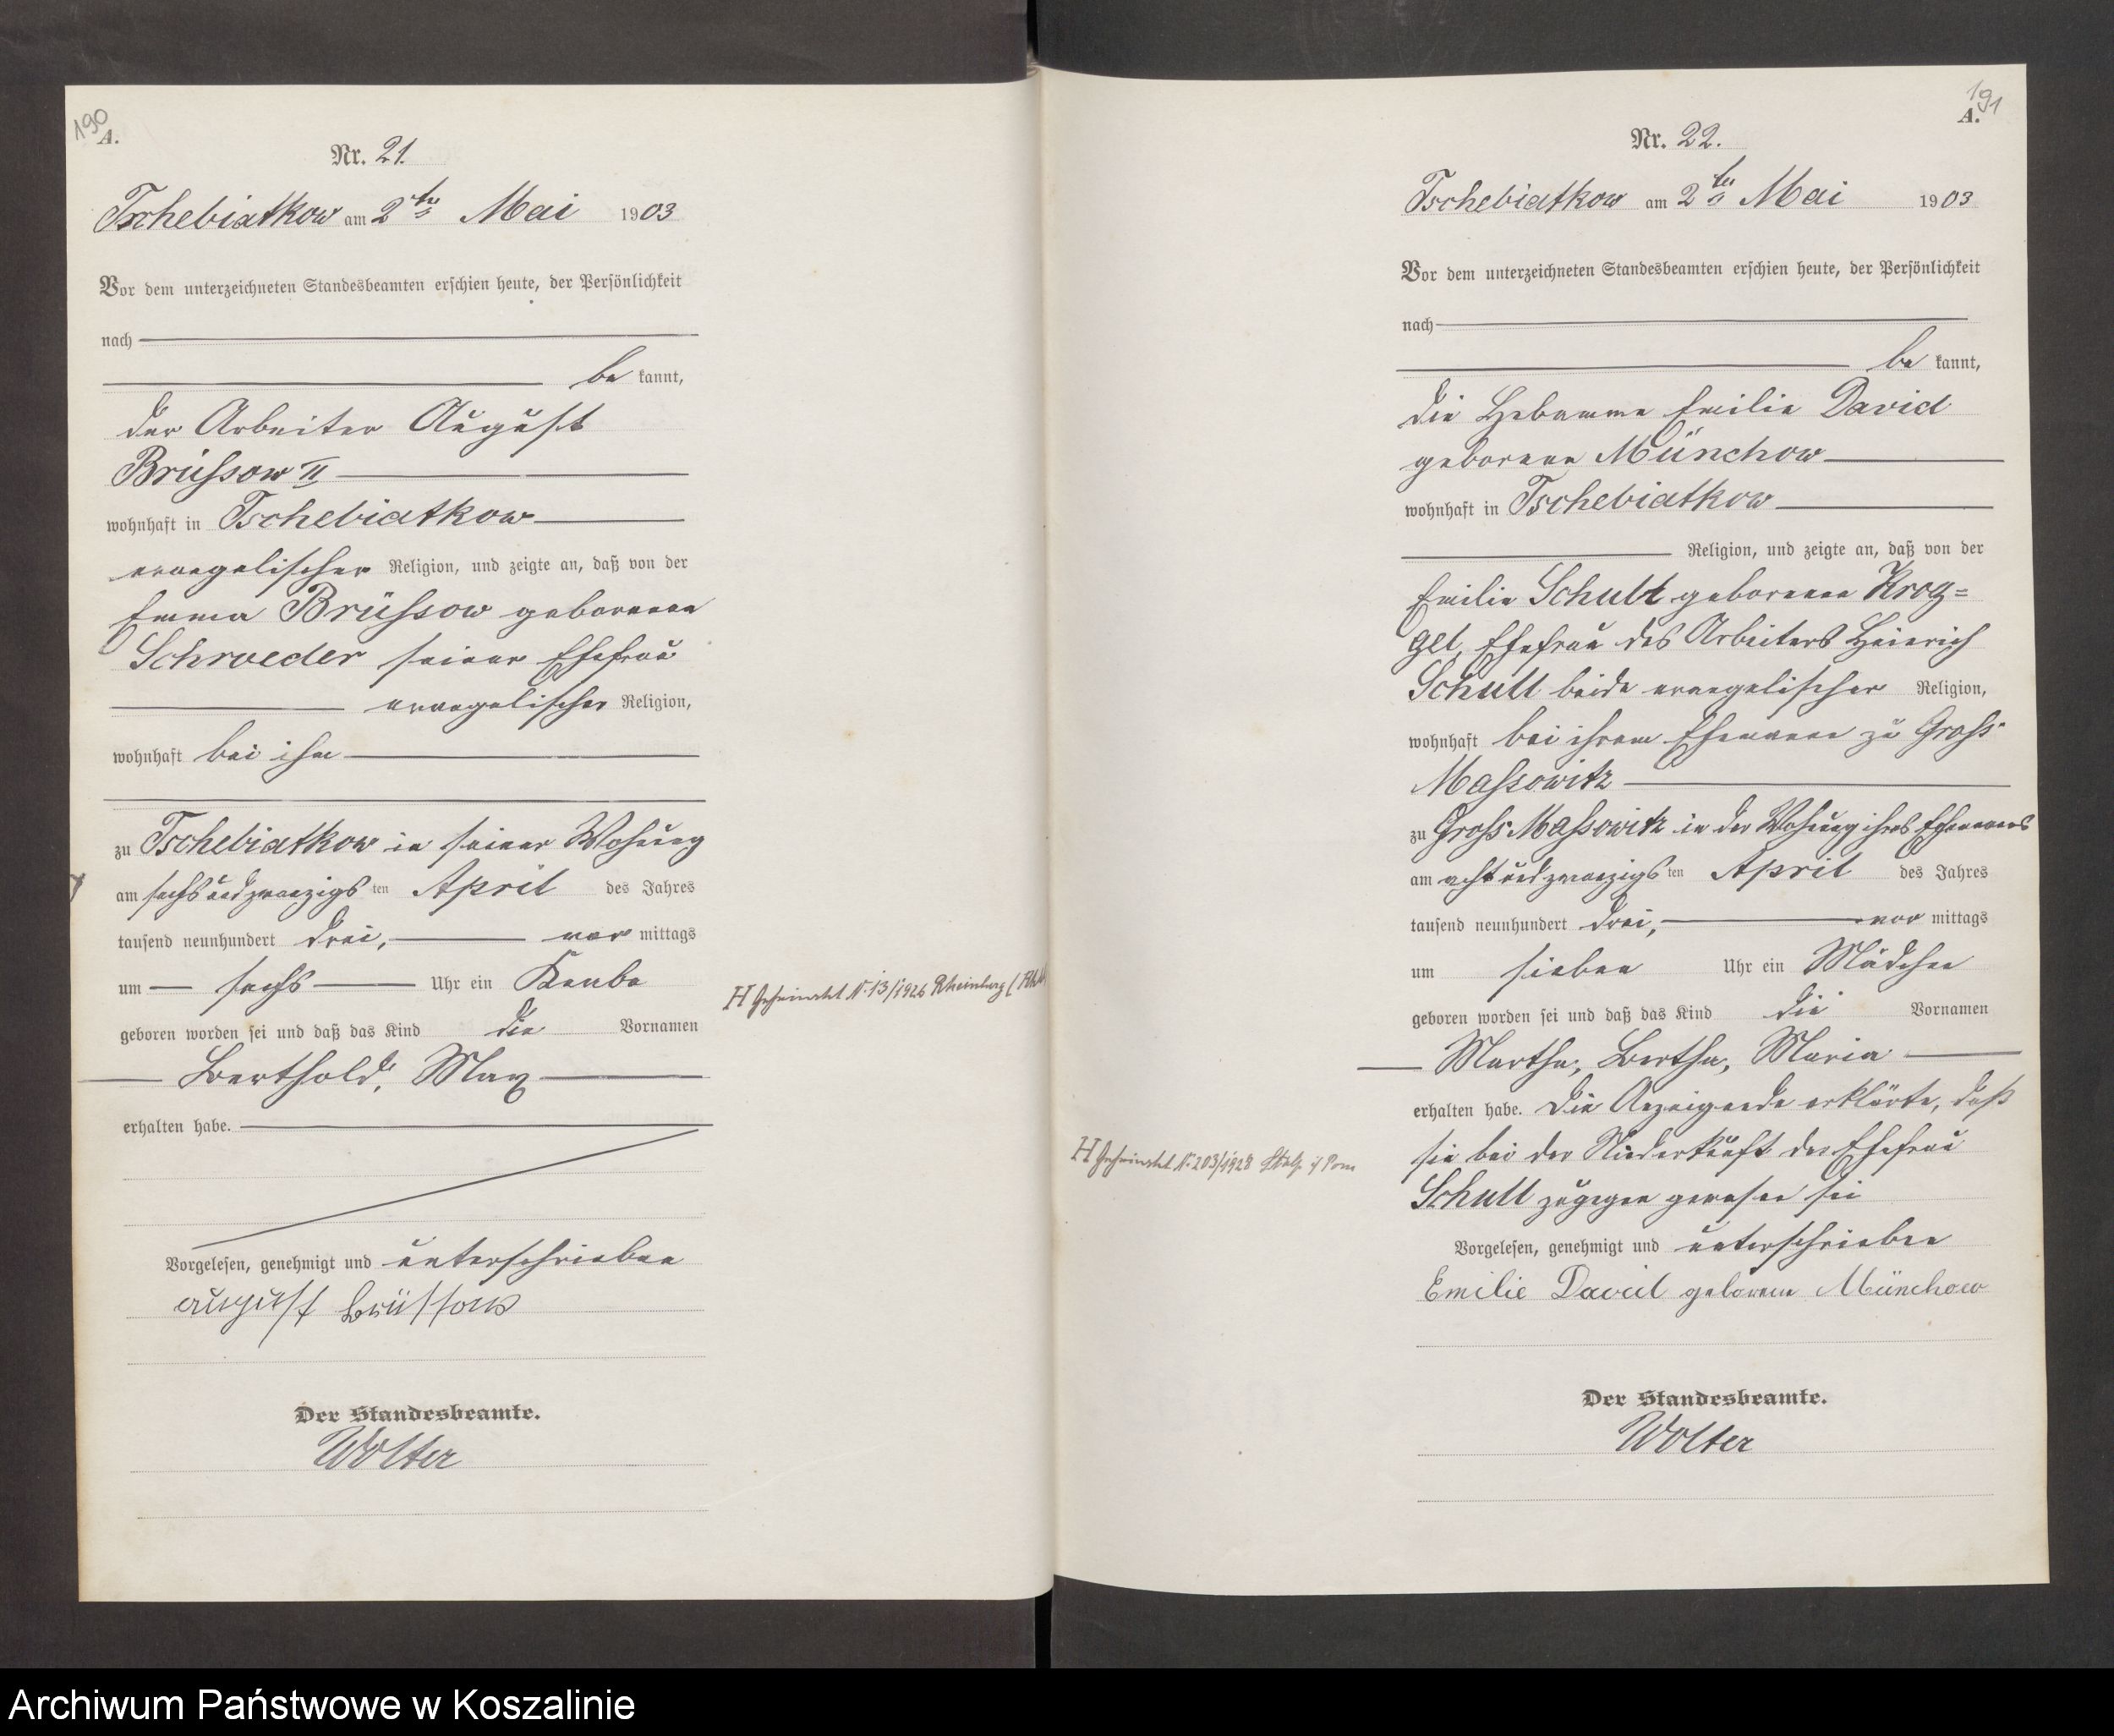 190
A.
Nr. 21.
Tschebiatkow am 2ten Mai 1903
Vor dem unterzeichneten Standesbeamten erschien heute, der Persönlichkeit
nach
be kannt,
der Arbeiter August
Brüssow II
wohnhaft in Tschebiatkow
evangelischer Religion, und zeigte an, daß von der
Emma Brüssow geborenen
Schroeder seiner Ehefrau
evangelischer Religion,
wohnhaft bei ihm
zu Tschebiatkow in seiner Wohnung
am sechsundzwanzigs ten April des Jahres
tausend neunhundert drei, vor mittags
um sechs Uhr ein Knabe
geboren worden sei und daß das Kind die Vornamen
Berthold, Max
erhalten habe.
Vorgelesen, genehmigt und unterschrieben
august Brüssow
Der Standesbeamte.
Wolter
H Geheiratet Nr. 13/1926 Rheinberg (Rhld
191
A.
Nr. 22.
Tschebiatkow am 2ten Mai 1903
Vor dem unterzeichneten Standesbeamten erschien heute, der Persönlichkeit
nach
be kannt,
die Hebamme Emilie David
geborene Münchow
wohnhaft in Tschebiatkow
Religion, und zeigte an, daß von der
Emilie Schult geborenen Krog=
gel, Ehefrau des Arbeiters Heinrich
Schult beide evangelischer Religion,
wohnhaft bei ihrem Ehemanne zu Gross
Massowitz
zu Gross Massowitz in der Wohnung ihres Ehemannes
am achtundzwanzigs ten April des Jahres
tausend neunhundert drei, vor mittags
um sieben Uhr ein Mädchen
geboren worden sei und daß das Kind die Vornamen
Martha, Bertha, Maria
erhalten habe. Die Anzeigende erklärte, daß
sie bei der Niederkunft der Ehefrau
Schult zugegen gewesen sei
Vorgelesen, genehmigt und unterschrieben
Emilie David geborene Münchow
Der Standesbeamte.
Wolter
H Geheiratet Nr. 203/1928 Stolp i/ Pom
Archiwum Państwowe w Koszalinie